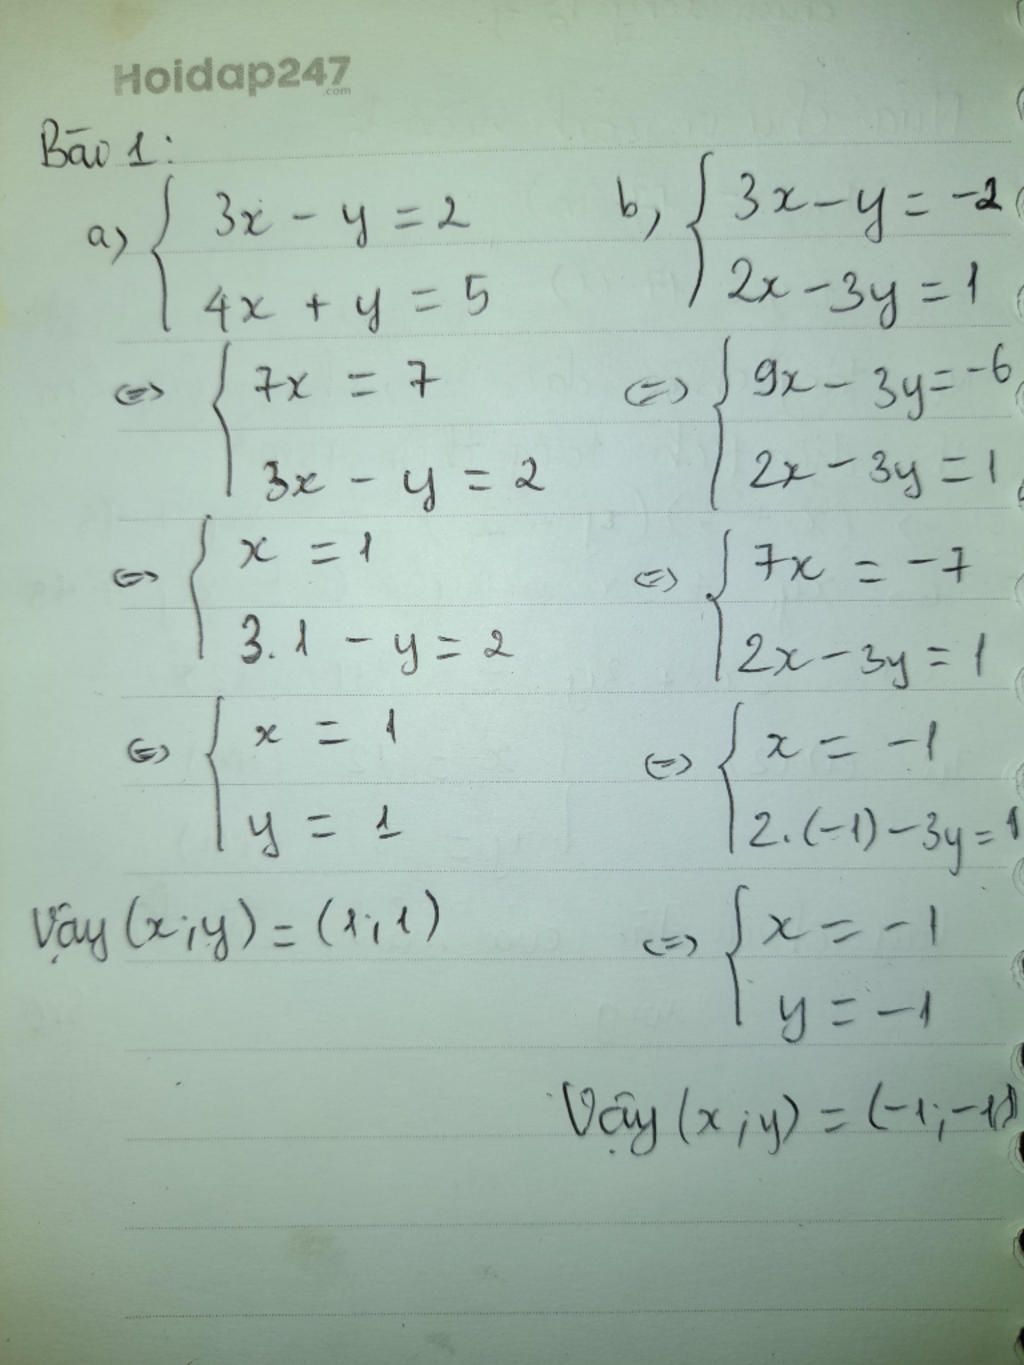 Hoidap247
.com
Bài 1:
a) { 3x - y = 2
4x + y = 5
<=> { 7x = 7
3x - y = 2
<=> { x = 1
3.1 - y = 2
<=> { x = 1
y = 1
Vậy (x;y) = (1;1)
b, { 3x - y = -2
2x - 3y = 1
<=> { 9x - 3y = -6
2x - 3y = 1
<=> { 7x = -7
2x - 3y = 1
<=> { x = -1
2.(-1) - 3y = 1
<=> { x = -1
y = -1
Vậy (x;y) = (-1;-1)